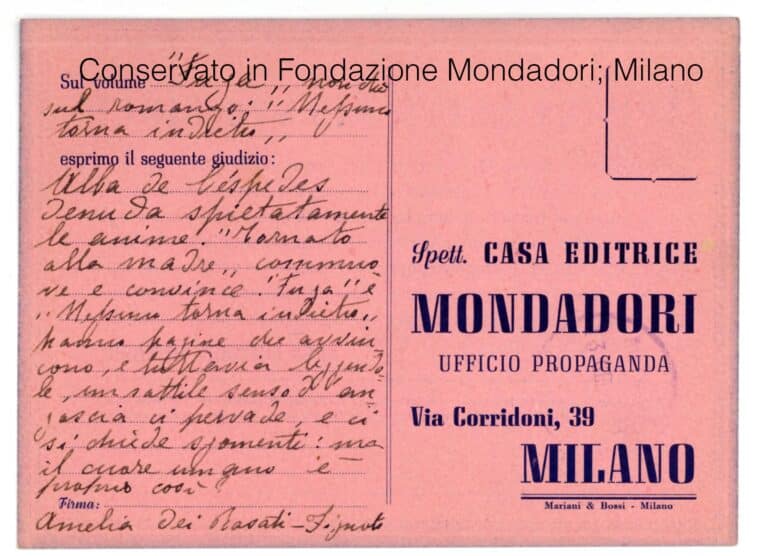 Conservato in Fondazione Mondadori; Milano
Sul volume "Fuga„
sul romanzo: "Nessuno
torna indietro„
esprimo il seguente giudizio:
Alba de Céspedes
denuda spietatamente
le anime. "Tornato
alla madre„ commuo
ve e convince. "Fuga" e
"Nessuno torna indietro„
hanno pagine che avvin
cono, e tuttavia leggendo
le, un sottile senso d'an
goscia ci pervade, e ci
si chiede sgomenti: ma
il cuore umano è
proprio così?
Firma:
Amelia Dei Rosati-
Spett. CASA EDITRICE
MONDADORI
UFFICIO PROPAGANDA
Via Corridoni, 39
MILANO
Mariani & Bossi - Milano